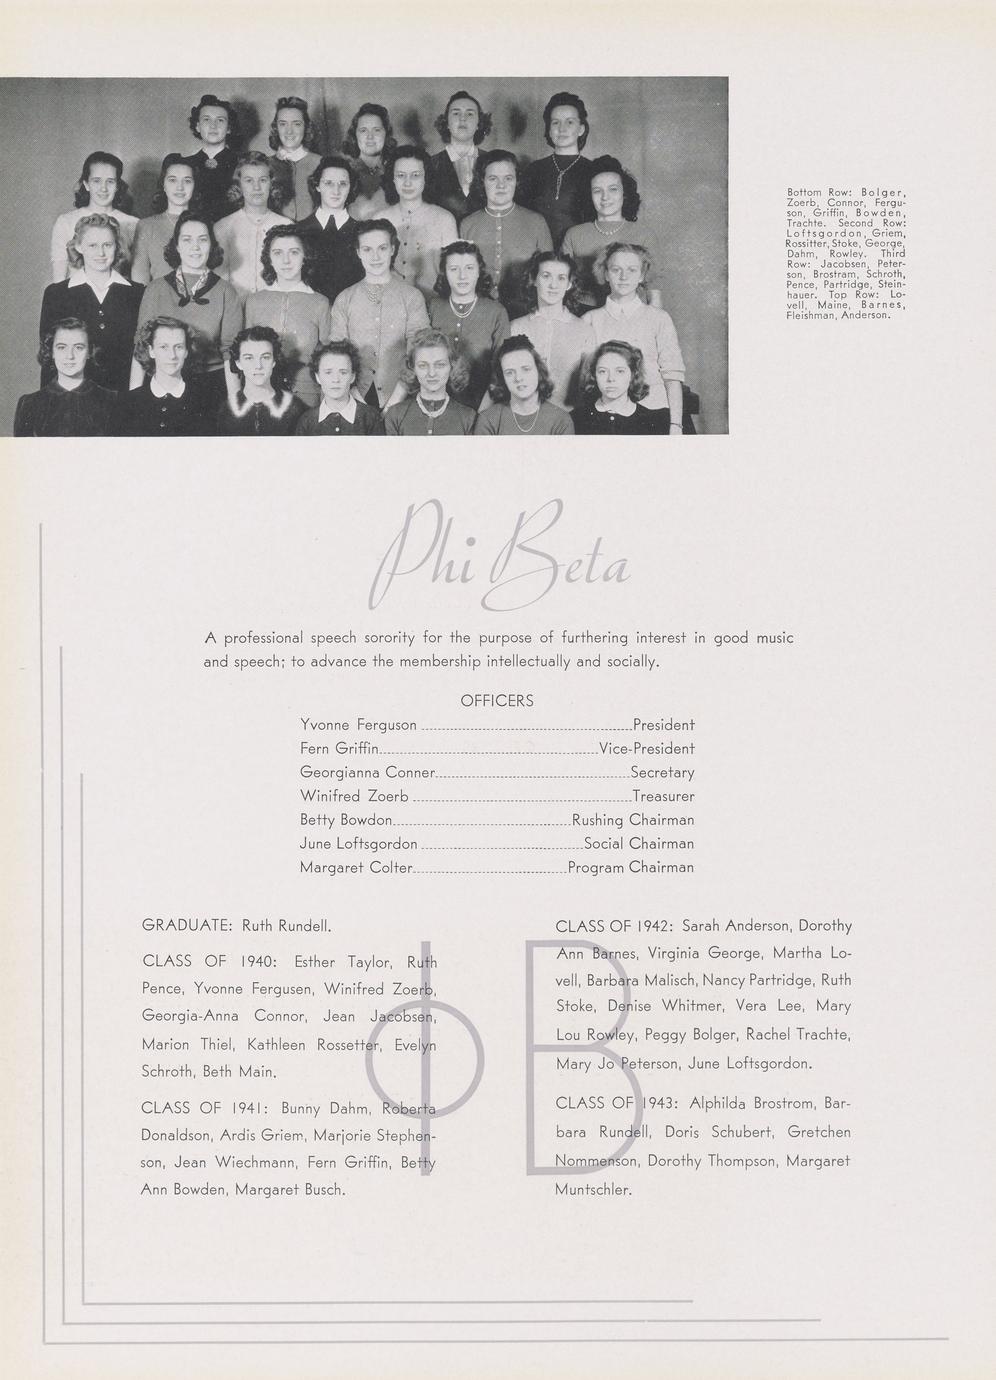 Bottom Row: Bolger,
Zoerb, Connor, Fergu-
son, Griffin, Bowden,
Trachte. Second Row:
Loftsgordon, Griem,
Rossitter, Stoke, George,
Dahm, Rowley. Third
Row: Jacobsen, Peter-
son, Brostram, Schroth,
Pence, Partridge, Stein-
hauer. Top Row: Lo-
vell, Maine, Barnes,
Fleishman, Anderson.
Phi Beta
A professional speech sorority for the purpose of furthering interest in good music
and speech; to advance the membership intellectually and socially.
OFFICERS
Yvonne Ferguson ........ President
Fern Griffin ........ Vice-President
Georgianna Conner ........ Secretary
Winifred Zoerb ........ Treasurer
Betty Bowdon ........ Rushing Chairman
June Loftsgordon ........ Social Chairman
Margaret Colter ........ Program Chairman
GRADUATE: Ruth Rundell.
CLASS OF 1940: Esther Taylor, Ruth
Pence, Yvonne Fergusen, Winifred Zoerb,
Georgia-Anna Connor, Jean Jacobsen,
Marion Thiel, Kathleen Rossetter, Evelyn
Schroth, Beth Main.
CLASS OF 1941: Bunny Dahm, Roberta
Donaldson, Ardis Griem, Marjorie Stephen-
son, Jean Wiechmann, Fern Griffin, Betty
Ann Bowden, Margaret Busch.
CLASS OF 1942: Sarah Anderson, Dorothy
Ann Barnes, Virginia George, Martha Lo-
vell, Barbara Malisch, Nancy Partridge, Ruth
Stoke, Denise Whitmer, Vera Lee, Mary
Lou Rowley, Peggy Bolger, Rachel Trachte,
Mary Jo Peterson, June Loftsgordon.
CLASS OF 1943: Alphilda Brostrom, Bar-
bara Rundell, Doris Schubert, Gretchen
Nommenson, Dorothy Thompson, Margaret
Muntschler.
ΦΒ